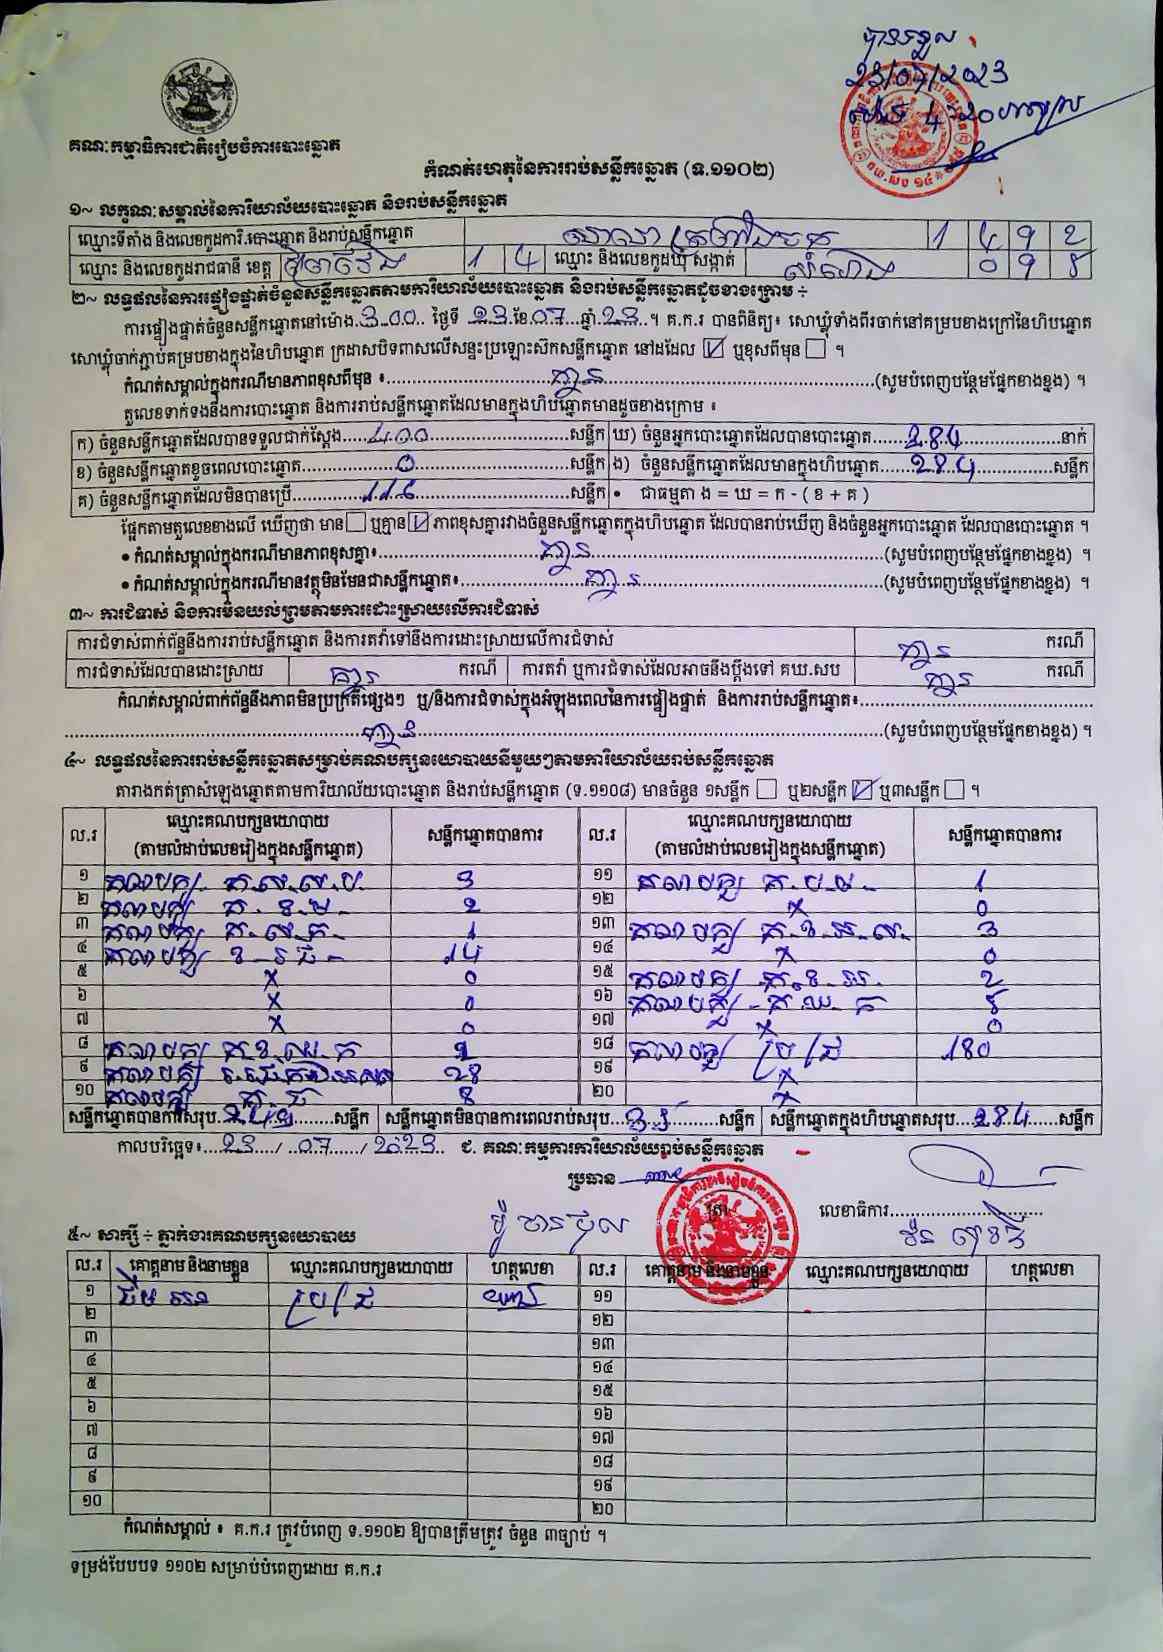 បានទទួល
23/07/2023
គណៈកម្មាធិការជាតិរៀបចំការបោះឆ្នោត
កំណត់ហេតុនៃការរាប់សន្លឹកឆ្នោត (ទ.១១០២)
១~ លក្ខណៈសម្គាល់នៃការិយាល័យបោះឆ្នោត និងរាប់សន្លឹកឆ្នោត
ឈ្មោះទីតាំង និងលេខកូដការិ.បោះឆ្នោត និងរាប់សន្លឹកឆ្នោត សាលា 1 4 9 2
ឈ្មោះ និងលេខកូដរាជធានី ខេត្ត ព្រៃវែង 1 4 ឈ្មោះ និងលេខកូដឃុំ សង្កាត់ 0 9 8
២~ លទ្ធផលនៃការផ្ទៀងផ្ទាត់ចំនួនសន្លឹកឆ្នោតតាមការិយាល័យបោះឆ្នោត និងរាប់សន្លឹកឆ្នោតដូចខាងក្រោម ÷
ការផ្ទៀងផ្ទាត់ចំនួនសន្លឹកឆ្នោតនៅម៉ោង.3:00.. ថ្ងៃទី 23.ខែ.07...ឆ្នាំ.23..។ គ.ក.រ បានពិនិត្យ៖ សោឃ្លុំទាំងពីរចាក់នៅគម្របខាងក្រៅនៃហិបឆ្នោត
សោឃ្លុំចាក់ភ្ជាប់គម្របខាងក្នុងនៃហិបឆ្នោត ក្រដាសបិទពាសលើសន្ទះប្រឡោះស៊កសន្លឹកឆ្នោត នៅដដែល ☑ ឬខុសពីមុន ☐ ។
កំណត់សម្គាល់ក្នុងករណីមានភាពខុសពីមុន ៖.....គ្មាន.....(សូមបំពេញបន្ថែមផ្នែកខាងខ្នង) ។
តួលេខទាក់ទងនឹងការបោះឆ្នោត និងការរាប់សន្លឹកឆ្នោតដែលមានក្នុងហិបឆ្នោតមានដូចខាងក្រោម ៖
ក) ចំនួនសន្លឹកឆ្នោតដែលបានទទួលជាក់ស្តែង.....400.....សន្លឹក ឃ) ចំនួនអ្នកបោះឆ្នោតដែលបានបោះឆ្នោត.....284.....នាក់
ខ) ចំនួនសន្លឹកឆ្នោតខូចពេលបោះឆ្នោត.....0.....សន្លឹក ង) ចំនួនសន្លឹកឆ្នោតដែលមានក្នុងហិបឆ្នោត.....284.....សន្លឹក
គ) ចំនួនសន្លឹកឆ្នោតដែលមិនបានប្រើ.....116.....សន្លឹក • ជាធម្មតា ង = ឃ = ក - ( ខ + គ )
ផ្អែកតាមតួលេខខាងលើ ឃើញថា មាន ☐ ឬគ្មាន ☑ ភាពខុសគ្នារវាងចំនួនសន្លឹកឆ្នោតក្នុងហិបឆ្នោត ដែលបានរាប់ឃើញ និងចំនួនអ្នកបោះឆ្នោត ដែលបានបោះឆ្នោត ។
• កំណត់សម្គាល់ក្នុងករណីមានភាពខុសគ្នា៖.....គ្មាន.....(សូមបំពេញបន្ថែមផ្នែកខាងខ្នង) ។
• កំណត់សម្គាល់ក្នុងករណីមានវត្ថុមិនមែនជាសន្លឹកឆ្នោត៖.....គ្មាន.....(សូមបំពេញបន្ថែមផ្នែកខាងខ្នង) ។
៣~ ការជំទាស់ និងការមិនយល់ព្រមតាមការដោះស្រាយលើការជំទាស់
ការជំទាស់ពាក់ព័ន្ធនឹងការរាប់សន្លឹកឆ្នោត និងការតវ៉ាទៅនឹងការដោះស្រាយលើការជំទាស់ គ្មាន ករណី
ការជំទាស់ដែលបានដោះស្រាយ គ្មាន ករណី ការតវ៉ា ឬការជំទាស់ដែលអាចនឹងប្តឹងទៅ គឃ.សប គ្មាន ករណី
កំណត់សម្គាល់ពាក់ព័ន្ធនឹងភាពមិនប្រក្រតីផ្សេងៗ ឬ/និងការជំទាស់ក្នុងអំឡុងពេលនៃការផ្ទៀងផ្ទាត់ និងការរាប់សន្លឹកឆ្នោត៖.....
.....គ្មាន.....(សូមបំពេញបន្ថែមផ្នែកខាងខ្នង) ។
៤~ លទ្ធផលនៃការរាប់សន្លឹកឆ្នោតសម្រាប់គណបក្សនយោបាយនីមួយៗតាមការិយាល័យរាប់សន្លឹកឆ្នោត
តារាងកត់ត្រាសំឡេងឆ្នោតតាមការិយាល័យបោះឆ្នោត និងរាប់សន្លឹកឆ្នោត (ទ.១១០៨) មានចំនួន ១សន្លឹក ☐ ឬ២សន្លឹក ☑ ឬ៣សន្លឹក ☐ ។
ល.រ ឈ្មោះគណបក្សនយោបាយ (តាមលំដាប់លេខរៀងក្នុងសន្លឹកឆ្នោត) សន្លឹកឆ្នោតបានការ ល.រ ឈ្មោះគណបក្សនយោបាយ (តាមលំដាប់លេខរៀងក្នុងសន្លឹកឆ្នោត) សន្លឹកឆ្នោតបានការ
១ គណបក្ស 3 ១១ គណបក្ស 1
២ គណបក្ស ក.ខ.ម 2 ១២ x 0
៣ គណបក្ស 1 ១៣ គណបក្ស 3
៤ គណបក្ស 14 ១៤ x 0
៥ x 0 ១៥ គណបក្ស 2
៦ x 0 ១៦ គណបក្ស 8
៧ x 0 ១៧ x 0
៨ គណបក្ស ១៨ គណបក្ស ប្រ ជ 180
៩ គណបក្ស 28 ១៩ x
១០ គណបក្ស 8 ២០ x
សន្លឹកឆ្នោតបានការសរុប.....សន្លឹក សន្លឹកឆ្នោតមិនបានការពេលរាប់សរុប.....សន្លឹក សន្លឹកឆ្នោតក្នុងហិបឆ្នោតសរុប...284.....សន្លឹក
កាលបរិច្ឆេទ៖....23..../...07..../ 2023.. ជ. គណៈកម្មការការិយាល័យរាប់សន្លឹកឆ្នោត
ប្រធាន
លេខាធិការ..............................
៥~ សាក្សី ÷ ភ្នាក់ងារគណបក្សនយោបាយ
ល.រ គោត្តនាម និងនាមខ្លួន ឈ្មោះគណបក្សនយោបាយ ហត្ថលេខា ល.រ គោត្តនាម និងនាមខ្លួន ឈ្មោះគណបក្សនយោបាយ ហត្ថលេខា
១ ប្រ ជ ១១
២ ១២
៣ ១៣
៤ ១៤
៥ ១៥
៦ ១៦
៧ ១៧
៨ ១៨
៩ ១៩
១០ ២០
កំណត់សម្គាល់ ៖ គ.ក.រ ត្រូវបំពេញ ទ.១១០២ ឱ្យបានត្រឹមត្រូវ ចំនួន ៣ច្បាប់ ។
ទម្រង់បែបបទ ១១០២ សម្រាប់បំពេញដោយ គ.ក.រ